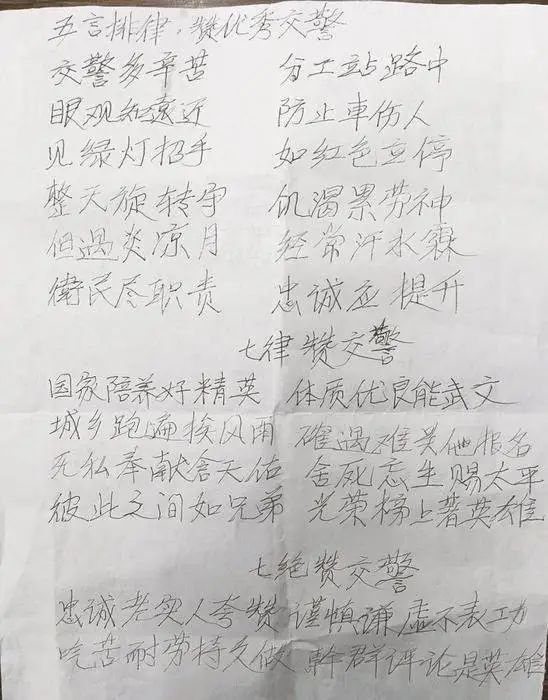 五言排律，赞优秀交警
交警多辛苦 分工站路中
眼观知遠近 防止車伤人
见绿灯招手 如红色立停
整天旋转孕 饥渴累劳神
但遇炎凉月 经常汗水霖
衛民尽职责 忠诚应提升
七律赞交警
国家陪养好精英 体质优良能武文
城乡跑遍挨风雨 碰遇难关他报名
死私奉献含天佑 舍死忘生赐太平
彼此之间如兄弟 光荣榜上著英雄
七绝赞交警
忠诚老实人夸赞 谨慎谦虚不表功
吃苦耐劳持久做 幹群评论是英雄